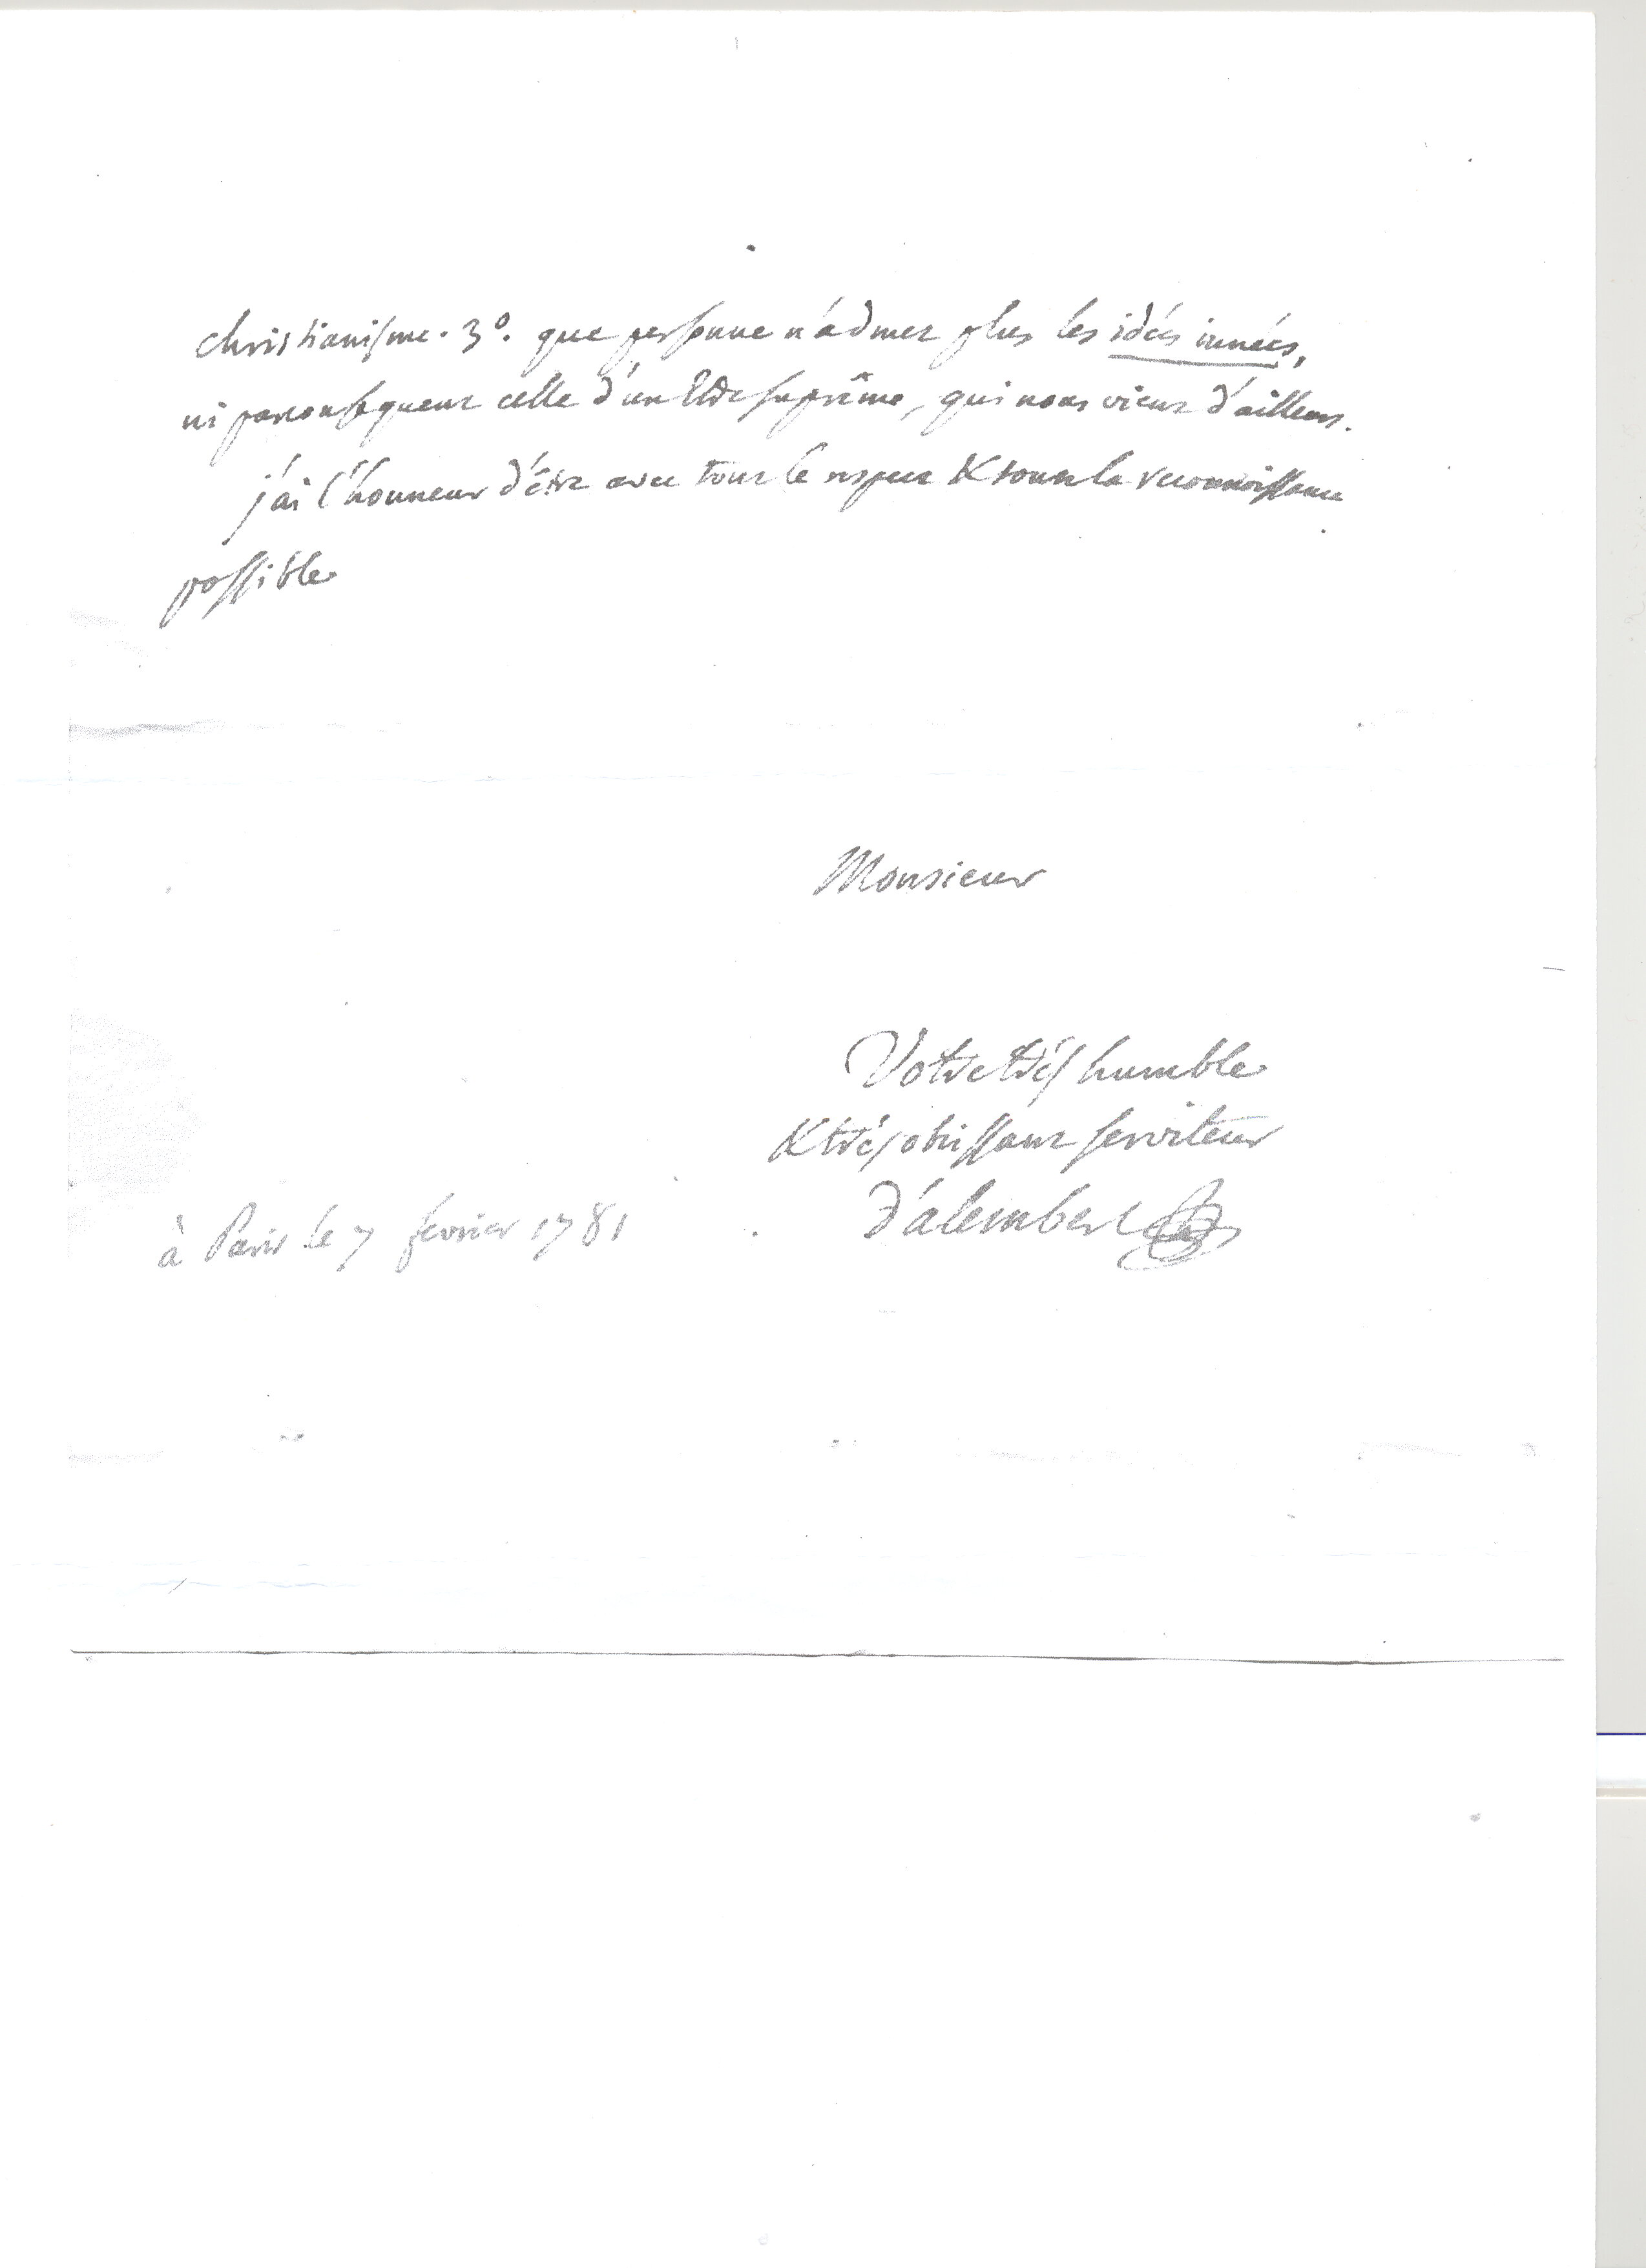 christianisme. 3º. que personne n'admet plus les idées innées,
ni par consequent celle d'un Etre suprême, qui nous vient d'ailleurs.
j'ai l'honneur d'être avec tout le respect & toute la reconnoissance
possible
Monsieur
Votre très humble
& très obéissant serviteur
à Paris le 7 février 1781
d'alembert